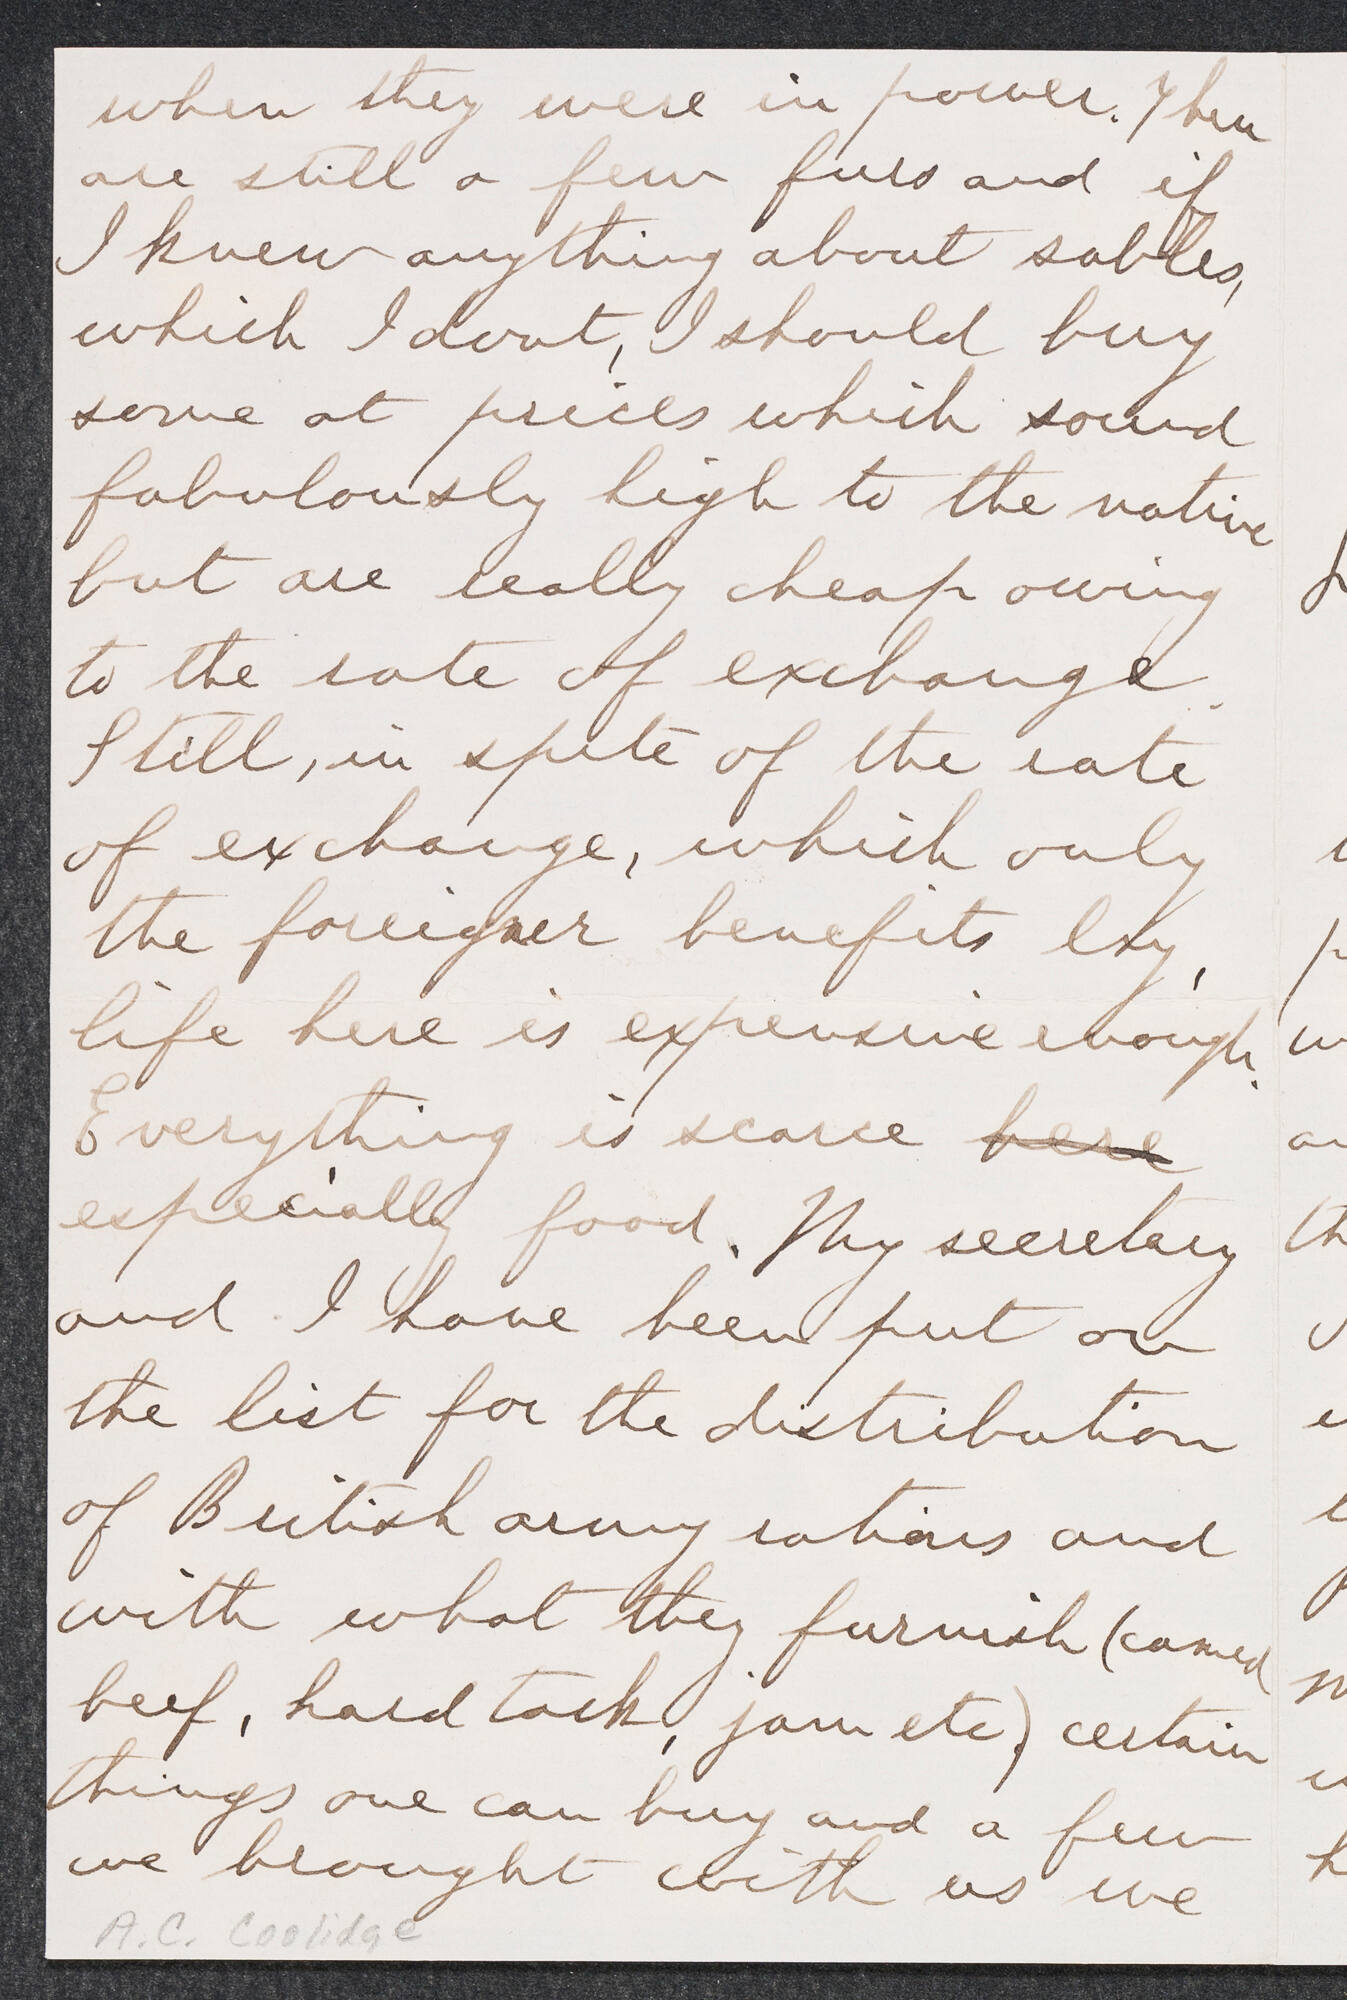 when they were in power. There
are still a few furs and if
I knew anything about sables,
which I dont, I should buy
some at prices which sound
fabulously high to the native
but are really cheap owing
to the rate of exchange.
Still, in spite of the rate
of exchange, which only
the foreigner benefits by,
life here is expensive enough.
Everything is scarce here
especially food. My secretary
and I have been put on
the list for the distribution
of British army rations and
with what they furnish (canned
beef, hard tack, jam etc) certain
things one can buy and a few
we brought with us we
A.C. Coolidge